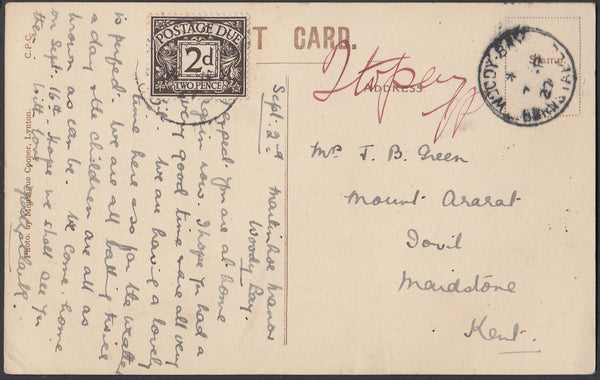 POST CARD.
POSTAGE DUE
2d
TWO PENCE
Stamp
ADDRESS
WOODY-BAY
BARNSTAPLE
27
C.P.C.
Cooper, Lynton.
Mr F. B. Green
Mount Ararat
Maidstone
Kent.
Sept. 2nd
Manor
Woody Bay.
You are at home
again now. I hope you had a
very good time & are all very
We are having a lovely
time here & so far the weather
is perfect. We are all bathing twice
a day & the children are all as
brown as can be. We come home
on Sept. 16th. Hope we shall see you
then. With love